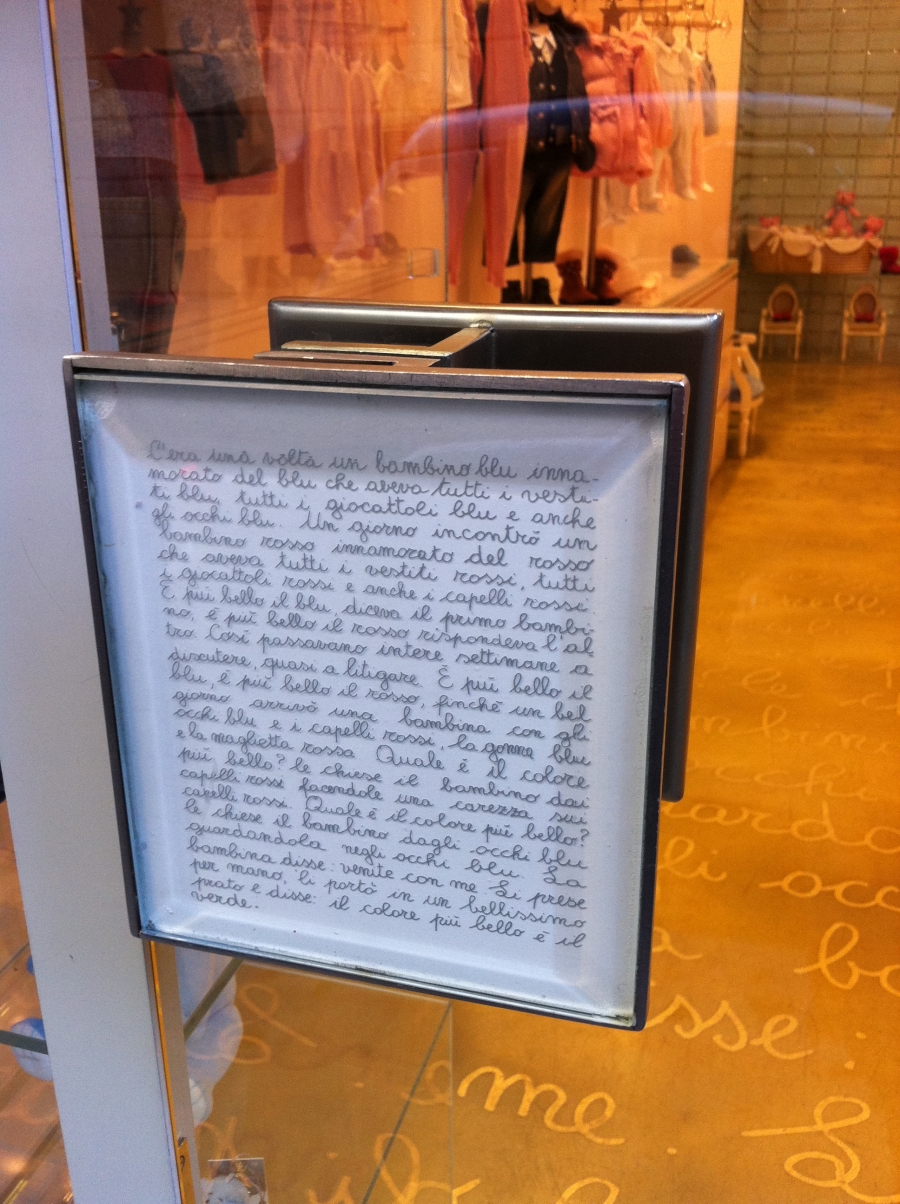 C'era una volta un bambino blu inna-
morato del blu che aveva tutti i vesti-
ti blu, tutti i giocattoli blu e anche
gli occhi blu. Un giorno incontrò un
bambino rosso innamorato del rosso
che aveva tutti i vestiti rossi, tutti
i giocattoli rossi e anche i capelli rossi.
È più bello il blu, diceva il primo bambi-
no, è più bello il rosso rispondeva l'al-
tro. Così passavano intere settimane a
discutere, quasi a litigare. È più bello il
blu, è più bello il rosso, finchè un bel
giorno arrivò una bambina con gli
occhi blu e i capelli rossi, la gonna blu
e la maglietta rossa. Quale è il colore
più bello? le chiese il bambino dai
capelli rossi facendole una carezza sui
capelli rossi. Quale è il colore più bello?
le chiese il bambino dagli occhi blu
guardandola negli occhi blu. La
bambina disse: venite con me. Li prese
per mano, li portò in un bellissimo
prato e disse: il colore più bello è il
verde.
isse:
me